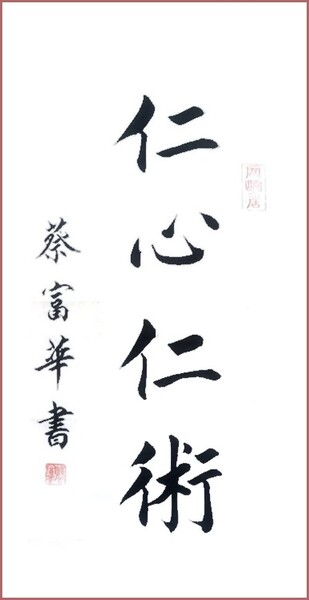 仁心仁術
蔡富華書